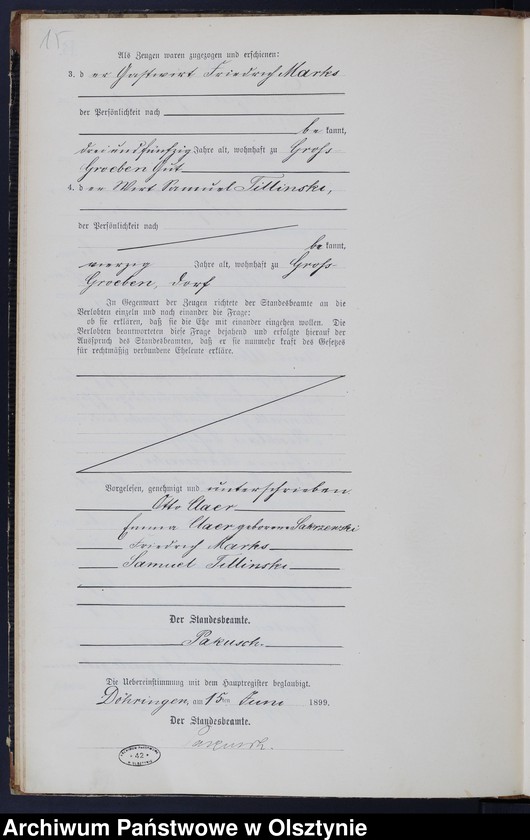 15
Als Zeugen waren zugezogen und erschienen:
3. der Gastwirt Friedrich Marks
der Persönlichkeit nach
bekannt,
dreiundfünfzig Jahre alt, wohnhaft zu Groß
Groeben Gut
4. der Wirt Samuel Tillinski,
der Persönlichkeit nach
bekannt,
vierzig Jahre alt, wohnhaft zu Groß-
Groeben, Dorf
In Gegenwart der Zeugen richtete der Standesbeamte an die
Verlobten einzeln und nach einander die Frage:
ob sie erklären, daß sie die Ehe mit einander eingehen wollen. Die
Verlobten beantworteten diese Frage bejahend und erfolgte hierauf der
Ausspruch des Standesbeamten, daß er sie nunmehr kraft des Gesetzes
für rechtmäßig verbundene Eheleute erkläre.
Vorgelesen, genehmigt und unterschrieben
Otto Claer
Emma Claer geborene Sakrzewski
Friedrich Marks
Samuel Tillinski
Der Standesbeamte.
Pakusch.
Die Uebereinstimmung mit dem Hauptregister beglaubigt.
Döhringen, am 15ten Juni 1899.
Der Standesbeamte.
Pakusch.
42
Archiwum Państwowe w Olsztynie